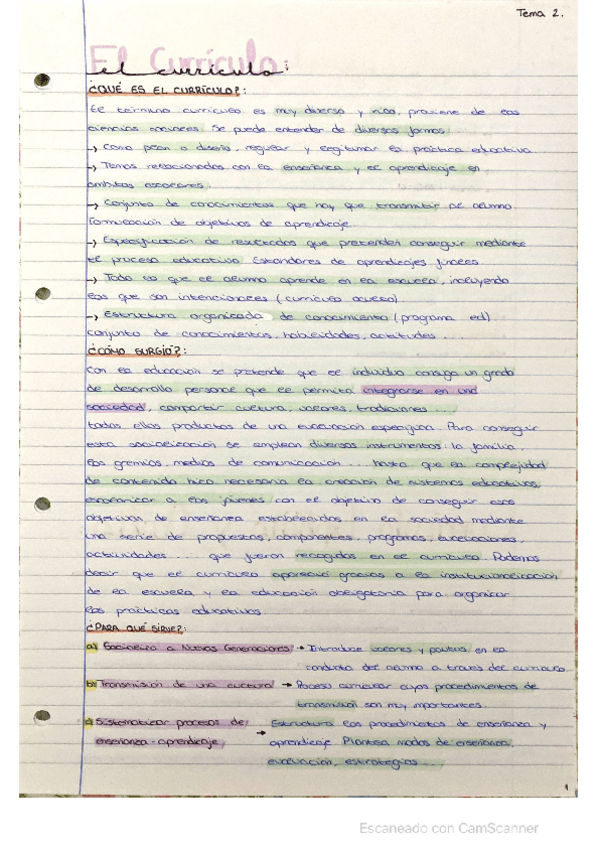 Tema 2.
El Currículo
el currículo:
¿QUÉ ES EL CURRÍCULO?:
El término currículo es muy diverso y rico, proviene de las
ciencias sociales. Se puede entender de diversas formas
→ Como plan o diseño, regular y legitimar la práctica educativa
→ Temas relacionados con la enseñanza y el aprendizaje en
ámbitos escolares.
→ Conjunto de conocimientos que hay que transmitir al alumno.
Formulación de objetivos de aprendizaje.
→ Especificación de resultados que pretenden conseguir mediante
el proceso educativo. Estándares de aprendizajes finales
→ Todo lo que el alumno aprende en la escuela, incluyendo
los que son intencionales (currículo oculto)
→ Estructura organizada de conocimiento (programa ed)
conjunto de conocimientos, habilidades, actitudes ...
¿CÓMO SURGIÓ?:
Con la educación se pretende que el individuo consiga un grado
de desarrollo personal que le permita integrarse en una
sociedad, compartir cultura, valores, tradiciones ...
todas ellas productos de una evolución específica. Para conseguir
esta socialización se emplean diversos instrumentos: la familia,
los gremios, medios de comunicación ... hasta que la complejidad
de contenido hizo necesaria la creación de sistemas educativos,
a los jóvenes con el objetivo de conseguir esos
objetivos de enseñanza establecidos en la sociedad mediante
una serie de propuestas, componentes, programas, evaluaciones,
actividades ... que fueron recogidos en el currículo. Podemos
decir que el currículo apareció gracias a la institucionalización
de la escuela y la educación obligatoria para organizar
las prácticas educativas.
¿PARA QUÉ SIRVE?:
a) Socializa a Nuevas Generaciones → Introduce valores y pautas en la
conducta del alumno a través del currículo.
b) Transmisión de una cultura → Proceso curricular cuyos procedimientos de
transmisión son muy importantes.
c) Sistematizar procesos de enseñanza-aprendizaje → Estructura los procedimientos de enseñanza y
aprendizaje. Plantea modos de enseñanza,
evaluación, estrategias ...
1
Escaneado con CamScanner